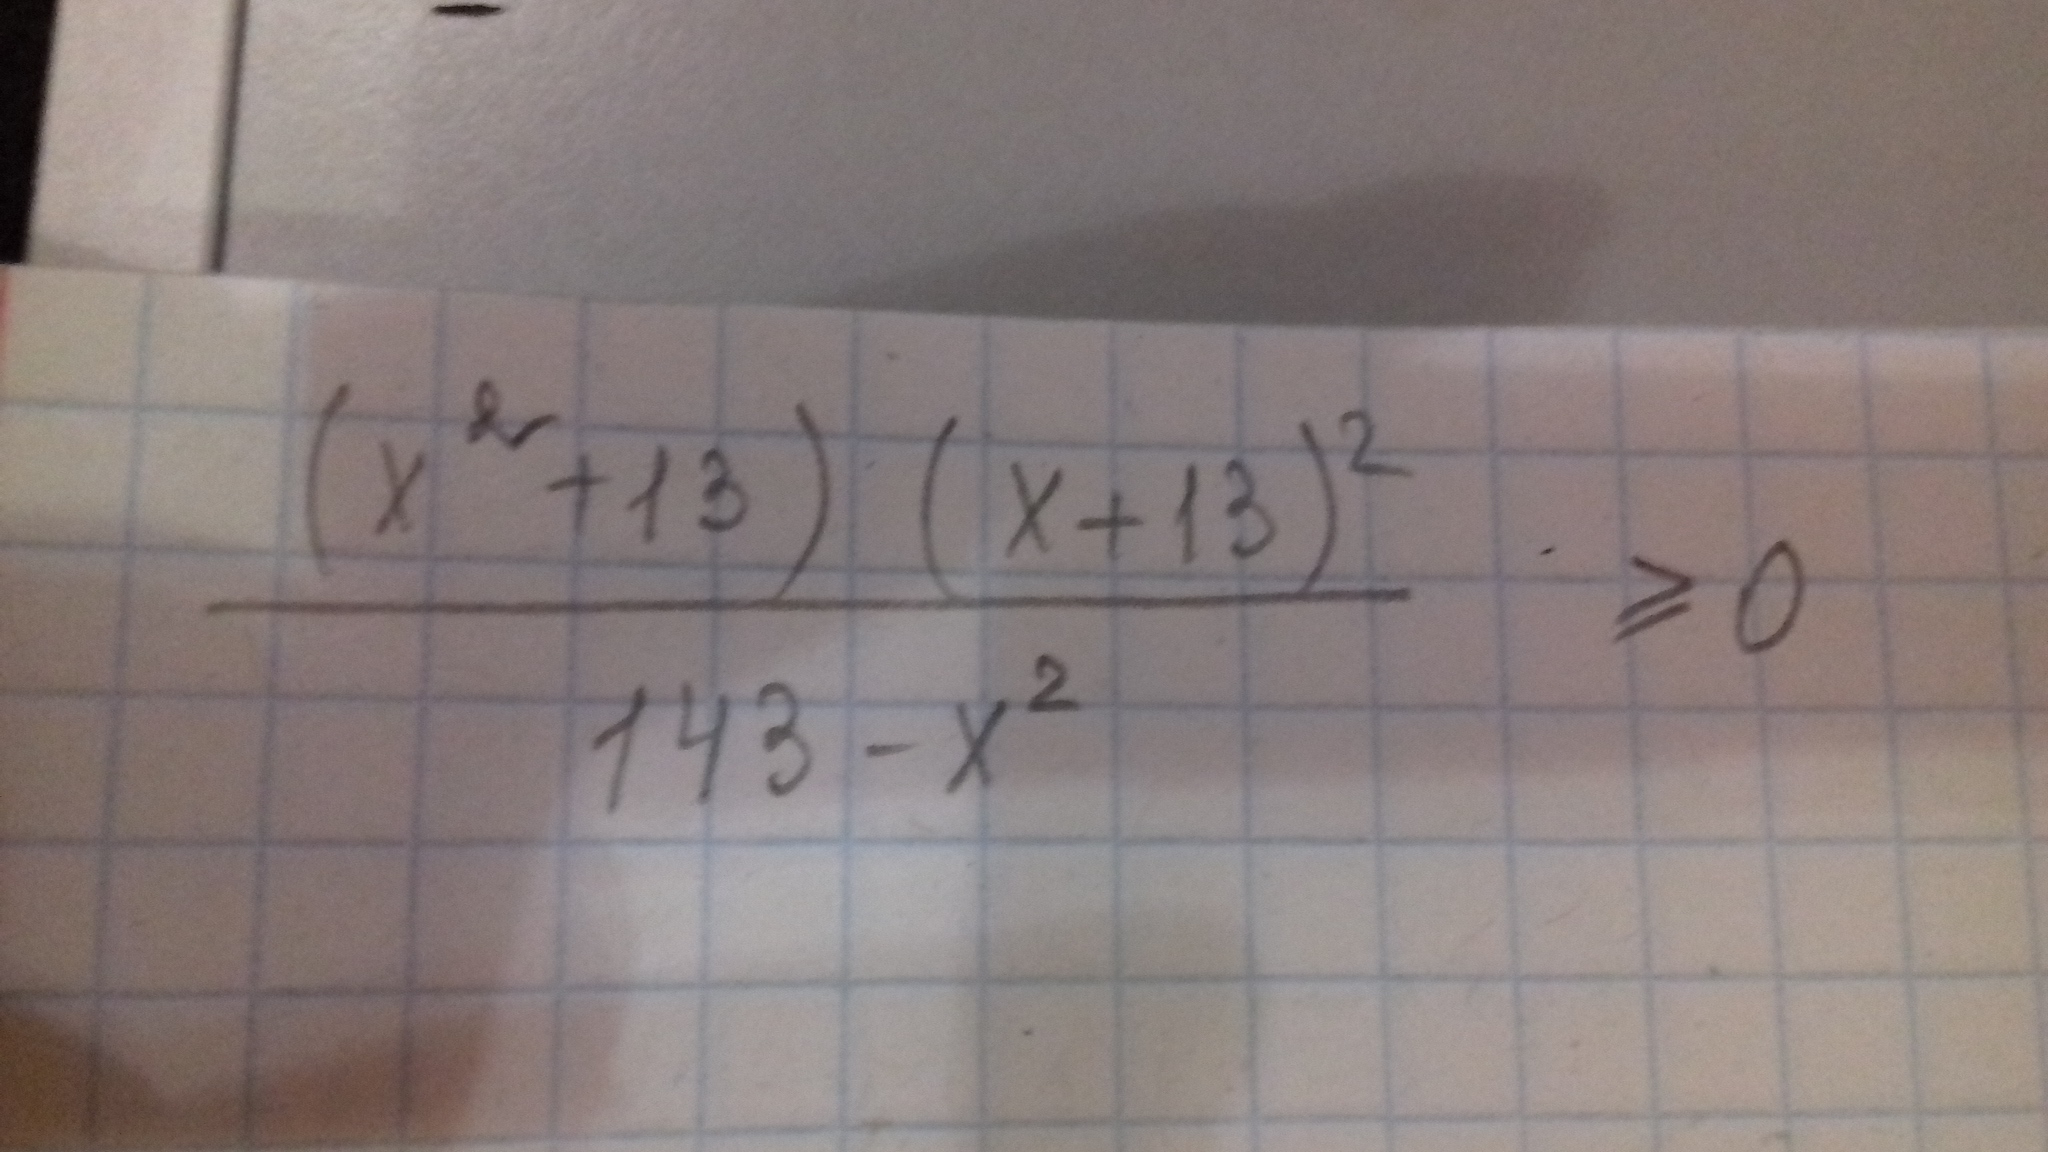 (x²+13) (x+13)²
≥ 0
143 - x²